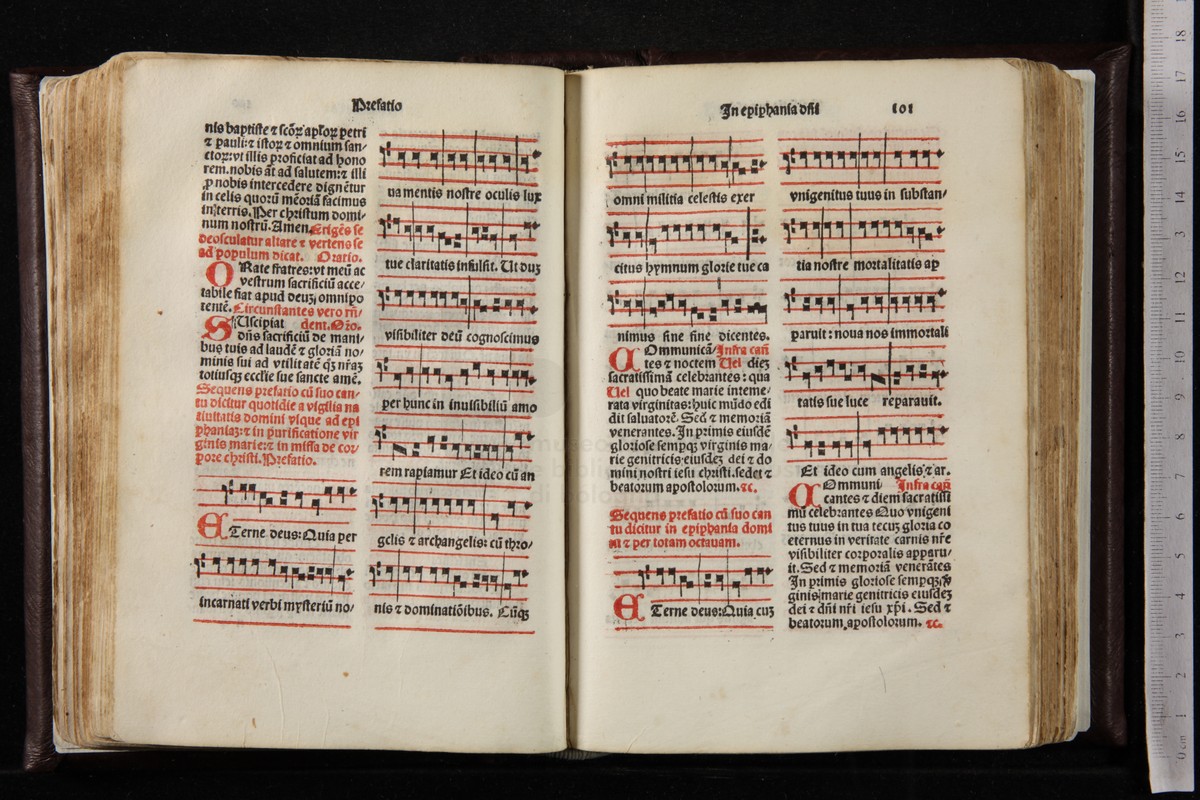 Prefatio
nis baptiste ⁊ scõꝝ apłoꝝ petri
⁊ pauli: ⁊ istoꝝ ⁊ omnium san-
ctoꝝ: vt illis proficiat ad hono
rem. nobis āt ad salutem: ⁊ illi
ꝓ nobis intercedere dignētur
in celis quorũ mēoriã facimus
in terris. Per christum domi-
num nostrũ. Amen. Erigēs se
deosculatur altare ⁊ vertens se
ad populum dicat. Oratio.
ORate fratres: vt meũ ac
vestrum sacrificiũ acce-
tabile fiat apud deuꝫ omnipo
tentē. Circunstantes vero rñ-
SUscipiat dent. Oꝛo.
dñs sacrificiũ de mani-
bus tuis ad laudē ⁊ gloriã no-
minis sui ad vtilitatē qꝫ nr̃aꝫ
totiusqꝫ ecclie sue sancte amē.
Sequens prefatio cũ suo can-
tu dicitur quotidie a vigilia na
tiuitatis domini vsque ad epi
phaniaꝫ: ⁊ in purificatione vir
ginis marie: ⁊ in missa de cor
pore christi. Prefatio.
ETerne deus: Quia per
incarnati verbi mysteriũ no-
ua mentis nostre oculis lux
tue claritatis infulsit. Ut duꝫ
visibiliter deũ cognoscimus
per hunc in inuisibiliũ amo
rem rapiamur Et ideo cũ an
gelis ⁊ archangelis: cũ thro-
nis ⁊ dominatiõibus. Cũqꝫ
In epiphania dñi 101
omni militia celestis exer
citus hymnum glorie tue ca
nimus sine fine dicentes.
COmmunicã- Infra cañ
tes ⁊ noctem Uel dieꝫ
sacratissimã celebrantes: qua
Uel quo beate marie inteme-
rata virginitas: huic mũdo edi
dit saluatorē. Sed ⁊ memoriã
venerantes. In primis eiusdē
gloriose sempqꝫ virginis ma-
rie genitricis eiusdeꝫ dei ⁊ do
mini nostri iesu christi. sed et ⁊
beatorum apostolorum. ⁊c.
Sequens prefatio cũ suo can
tu dicitur in epiphania domi
ni ⁊ per totam octauam.
ETerne deus: Quia cuꝫ
vnigenitus tuus in substan-
tia nostre mortalitatis ap
paruit: noua nos immortali
tatis sue luce reparauit.
Et ideo cum angelis ⁊ ar.
COmmuni- Infra cañ
cantes ⁊ diem sacratissi
mũ celebrantes Quo vnigeni
tus tuus in tua tecuꝫ gloria co
eternus in veritate carnis nr̃e
visibiliter corporalis apparu-
it. Sed ⁊ memoriã venerātes
In primis gloriose sempqꝫ v̾
ginis marie genitricis eiusdeꝫ
dei ⁊ dñi nr̃i iesu xp̃i. Sed ⁊
beatorum apostolorum. ⁊c.